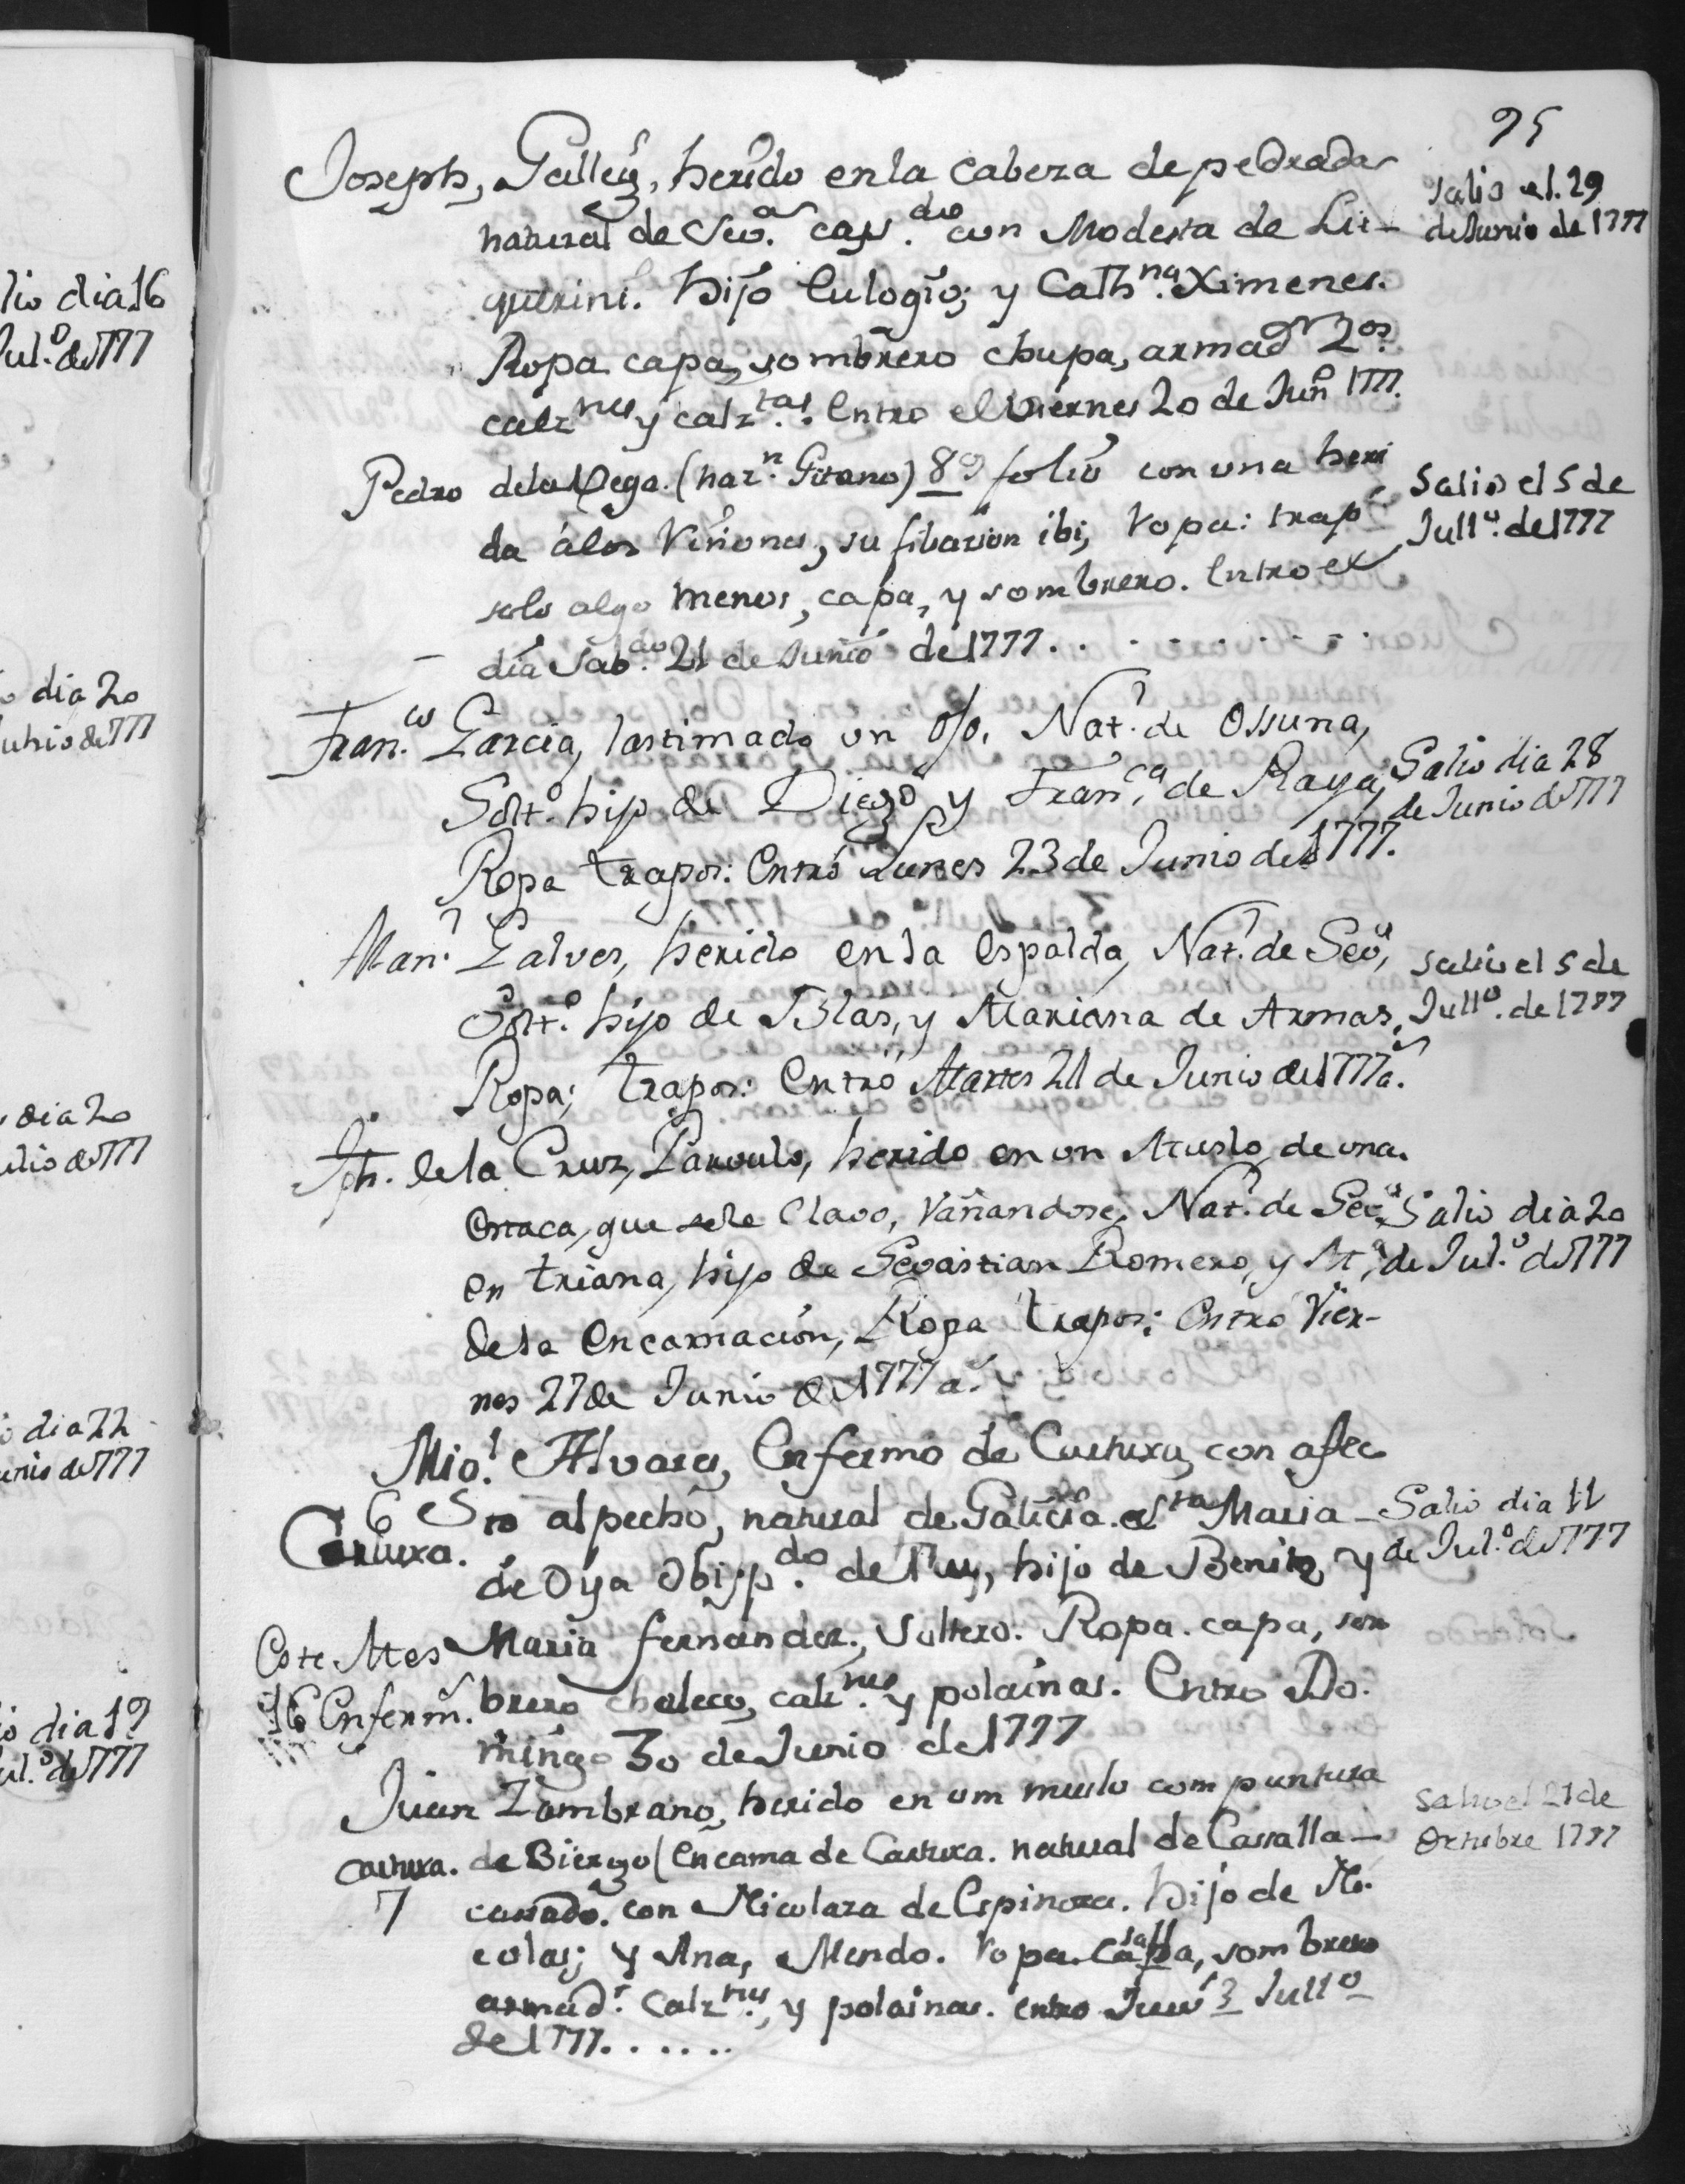 95
Joseph, Galleg.s, herido en la cabeza de pedrada
natural de Sev.a cas.do con Modesta de Lit-
querini. hijo Eulogio; y Cath.na Ximenes.
Ropa capa, sombrero chupa, armad.r 2os
calz.nes y calz.tas. Entro el Viernes 20 de Jun.o 1777.
salio el. 29
de Junio de 1777
Pedro de la Vega. (naz.n Gitano) 89 folio con una heri
da á los Riñones, su filiacion ibi, ropa: trap.s
solo algo menos, capa, y sombrero. Entro el
dia Sab.do 21 de Junio de 1777. . . . . . . . .
Salio el 5 de
Jull.o de 1777
Fran.co Garcia, lastimado un o/o. Nat.l de Ossuna,
Solt.o hijo de Diego y Fran.ca de Raya,
Ropa trapos: Entró Lunes 23 de Junio de 1777.
Salio dia 28
de Junio de 777
Man.l Galves, herido en la espalda, Nat.l de Sev.a,
Solt.o hijo de Blas, y Mariana de Armas,
Ropa; trapos: Entró Martes 24 de Junio de 1777 a.s
salio el 5 de
Jull.o de 1777
Jph. de la Cruz, Parvulo, herido en un Muslo, de una
estaca, que se le Clavo, Vañandose, Nat.l de Sev.a
en triana, hijo de Sevastian Romero, y M.a
de la Encarnacion, Ropa trapos: Entró Vier-
nes 27 de Junio de 1777 a.s
Salio dia 20
de Jul.o de 777
Mig.l Alvares, Enfermo de Cartuxa, con afec
to al pecho, natural de Galicia. Sta Maria
de Oya Obisp.do de Tuy, hijo de Benito, y
Maria fernandez., soltero. Ropa. capa, som
brero chaleco, calz.nes y polainas. Entro Do-
mingo 30 de Junio de 1777
6
Cartuxa.
Este Mes
16 Enferm.s
Salio dia 11
de Jul.o de 777
Juan Zambrano, herido en um muslo com puntura
de Bierzo (En cama de Cartuxa. natural de Casalla
casado. con Nicolaza de Espinoza. hijo de Ni-
colas; y Ana, Mendo. ropa. capa, sombrero
armad.r Calz.nes, y polainas. entro Juev.s 3 Jull.o
de 1777. . . . . .
cartuxa.
7
Salio el 21 de
Octubre 1777
lio dia 16
Jul.o de 777
dia 20
unio de 777
dia 20
ulio de 777
dia 22
unio de 777
dia 19
ul.o de 777